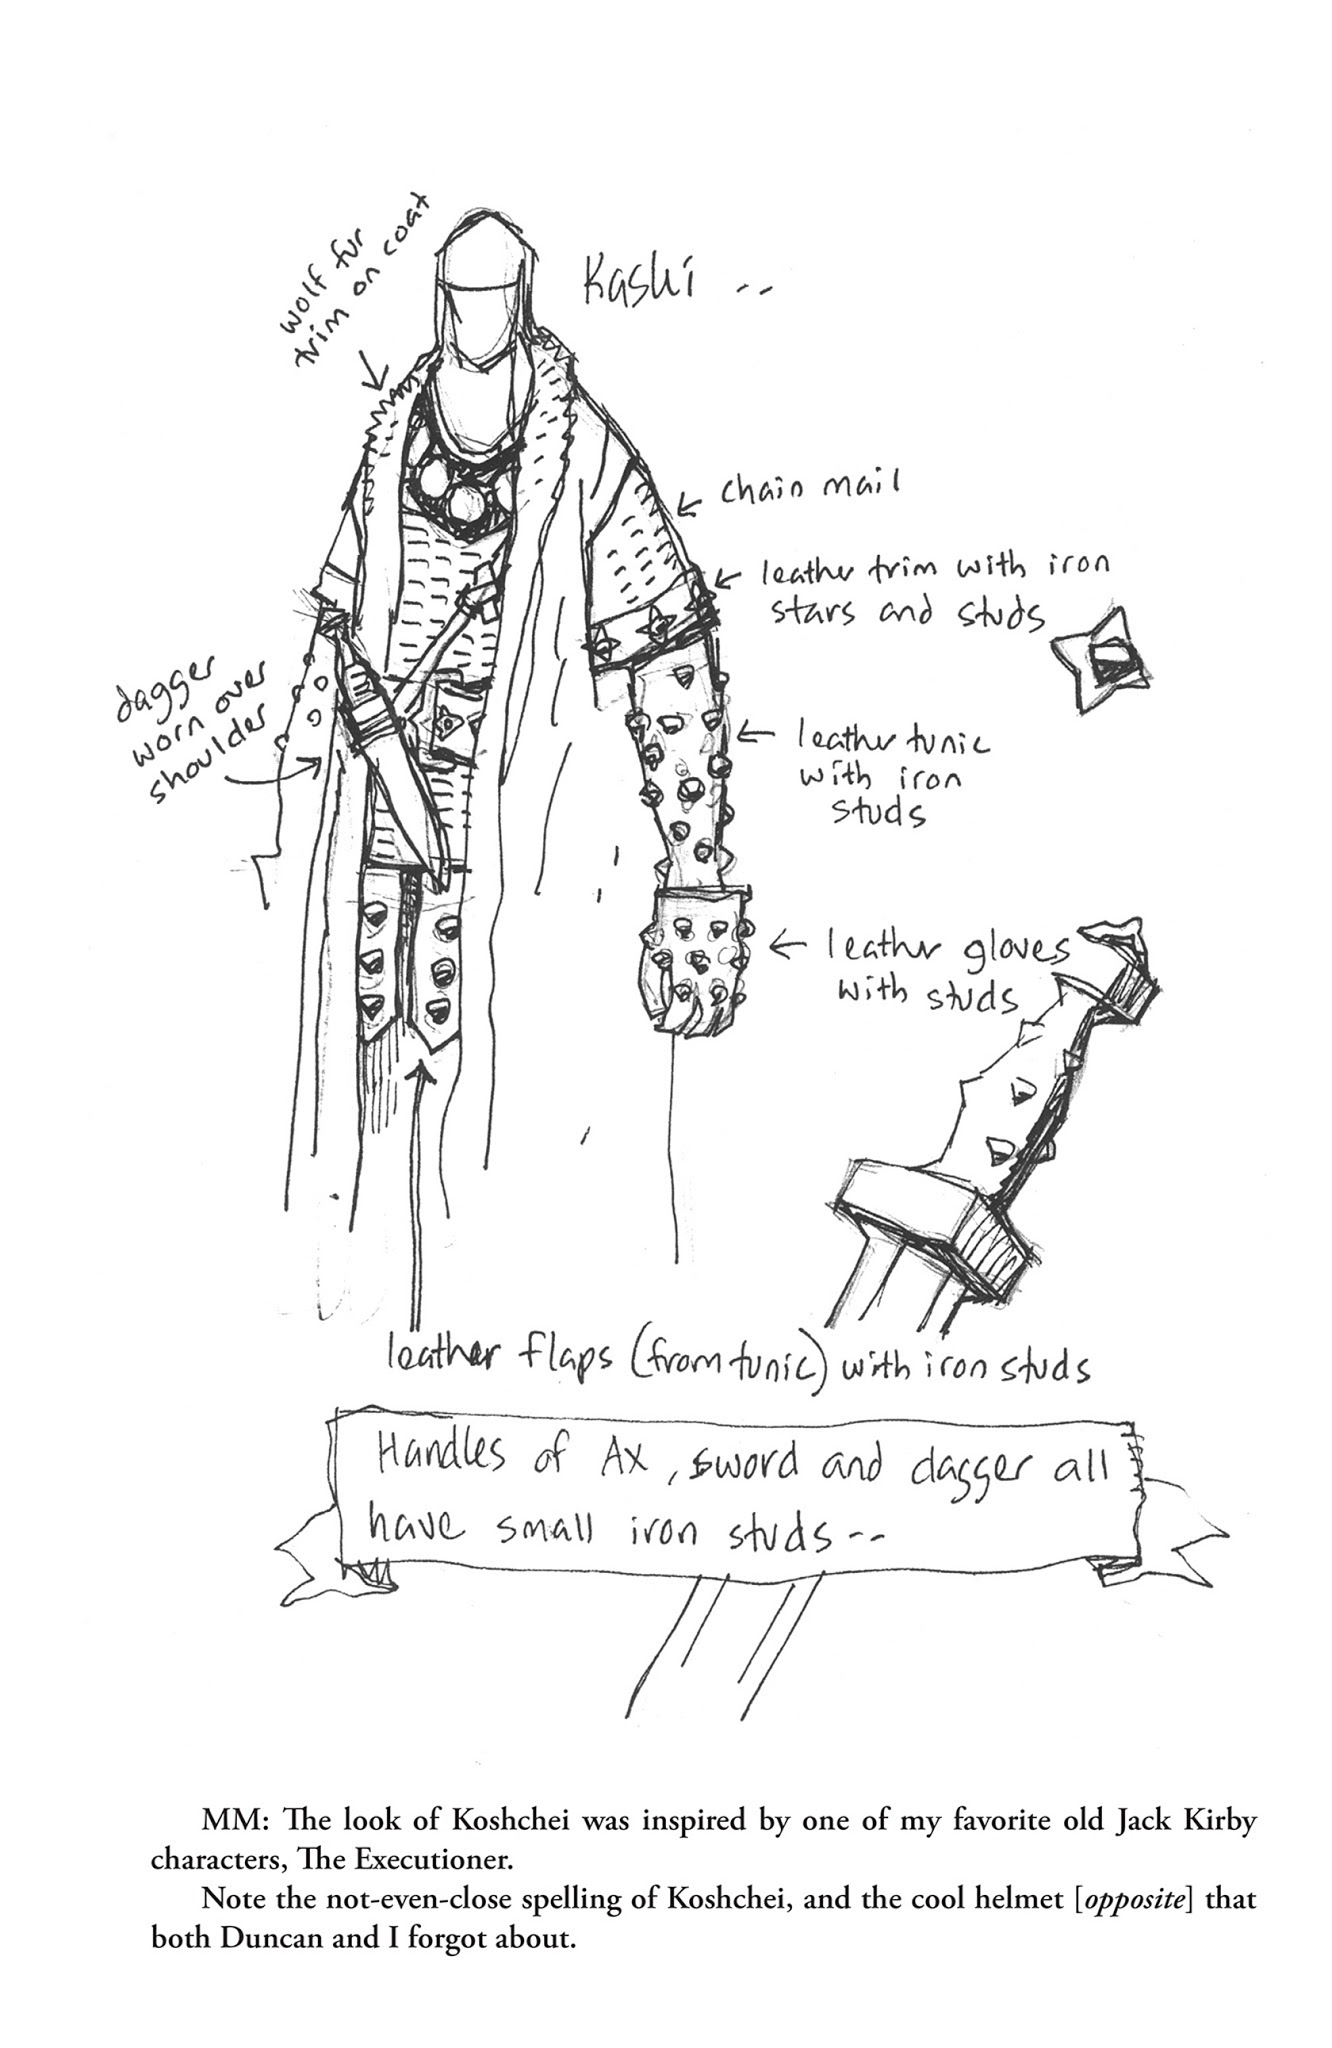 wolf fur
trim on coat
Kashi --
chain mail
leather trim with iron
stars and studs
dagger
worn over
shoulder
leather tunic
with iron
studs
leather gloves
with studs
leather flaps (from tunic) with iron studs
Handles of Ax, sword and dagger all
have small iron studs--
MM: The look of Koshchei was inspired by one of my favorite old Jack Kirby
characters, The Executioner.
Note the not-even-close spelling of Koshchei, and the cool helmet [opposite] that
both Duncan and I forgot about.